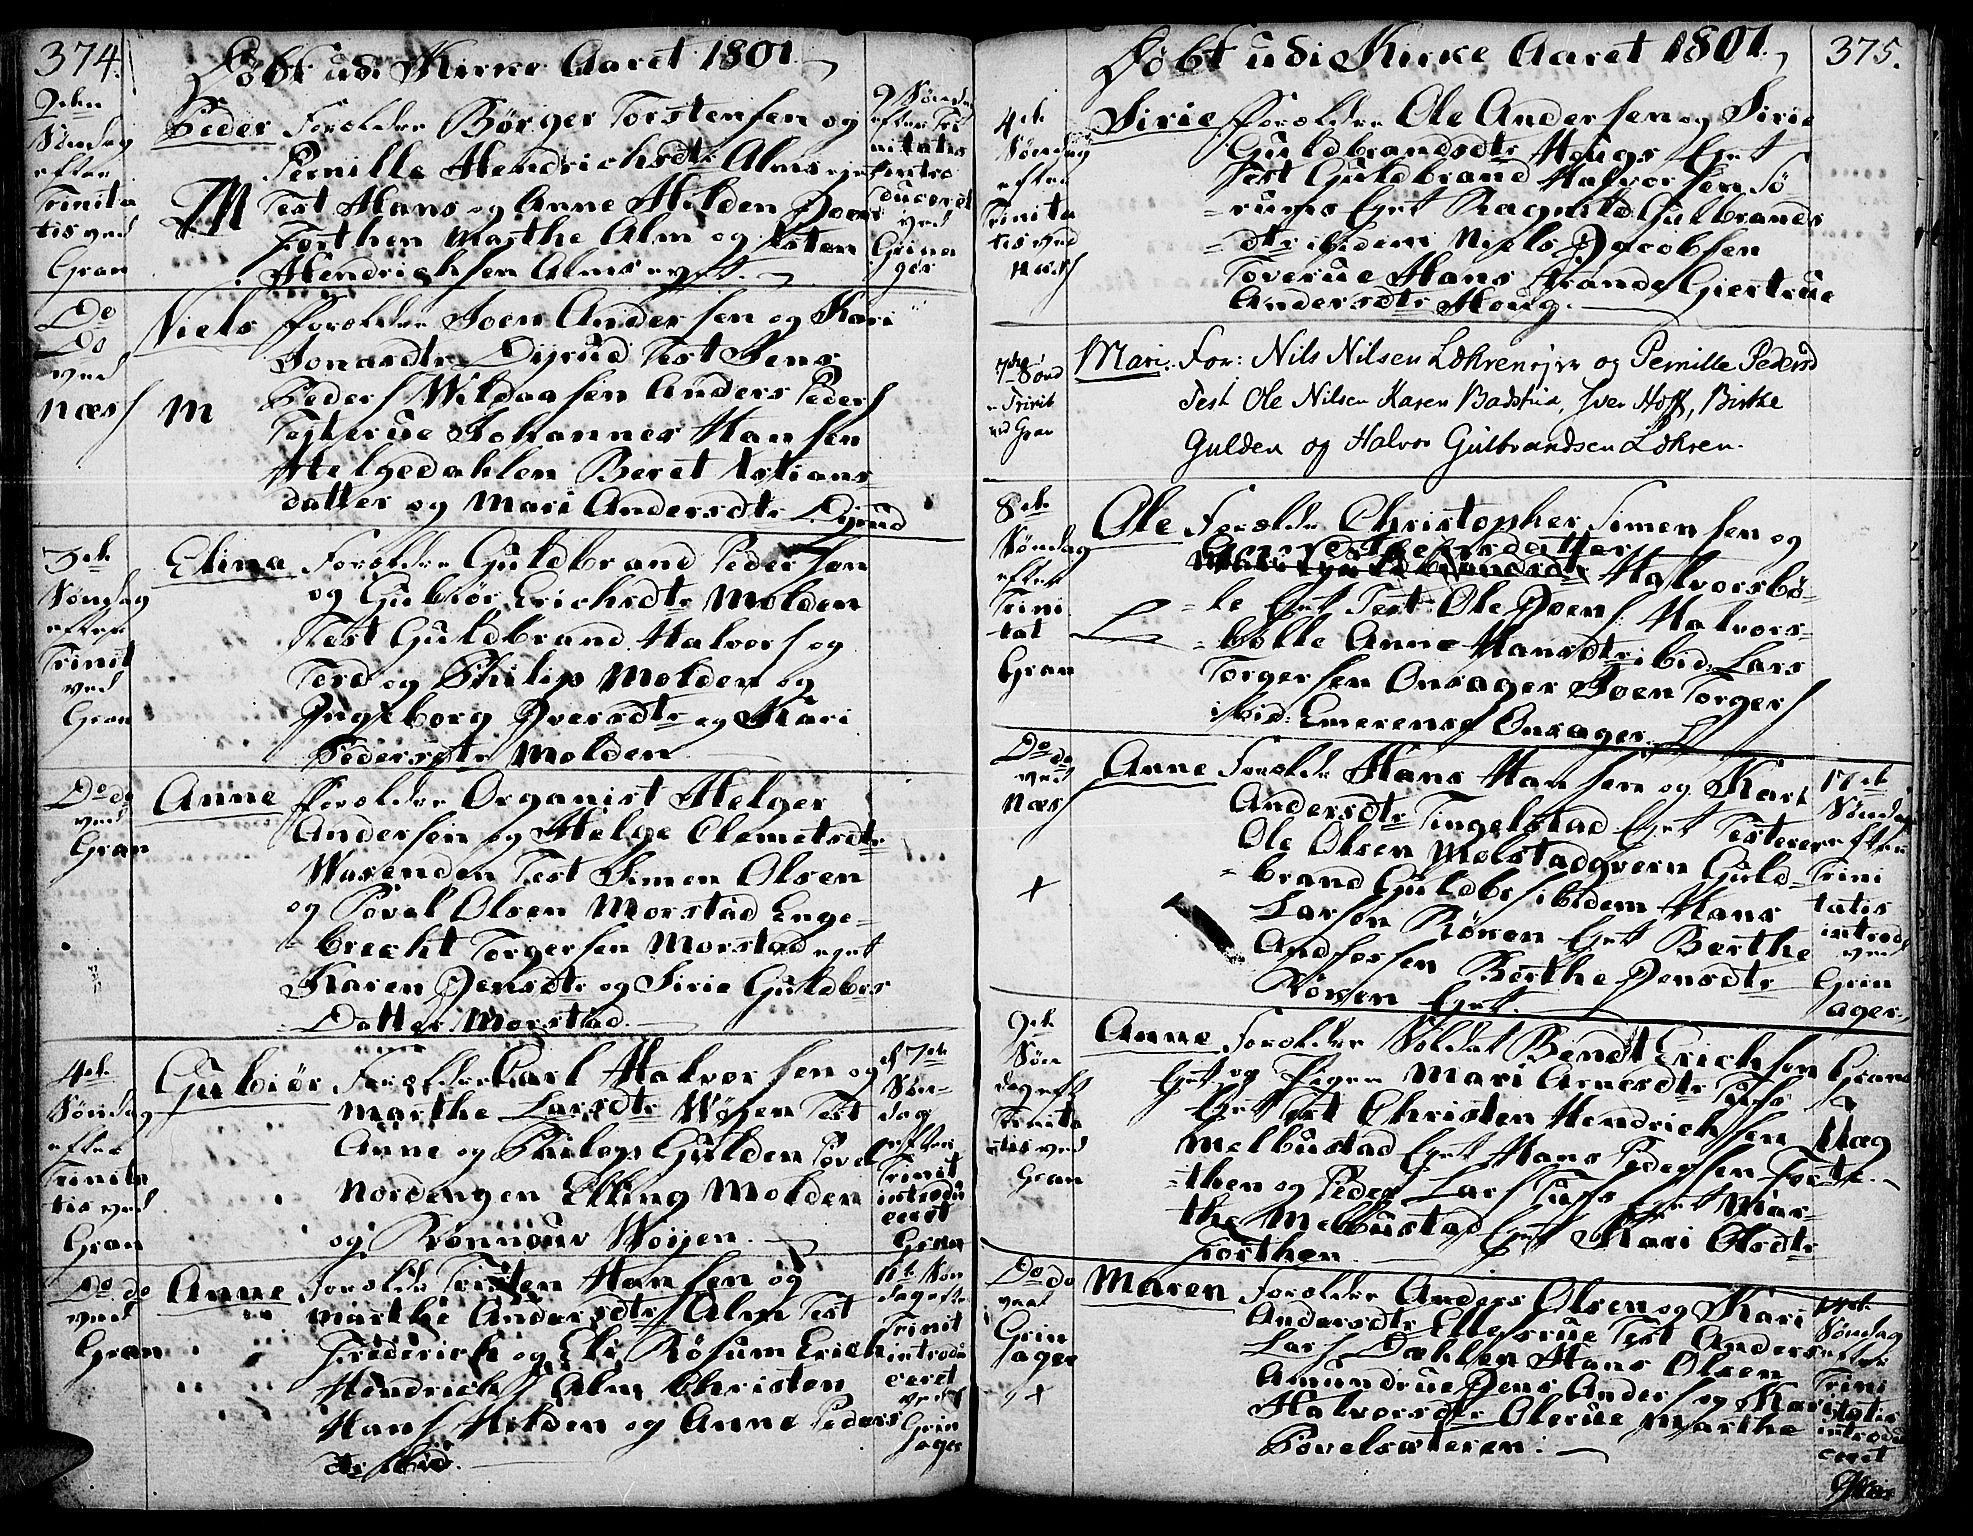 374.
Døbt udi Kirke Aaret 1801.
2den
Søndag
efter
Trinita
tis ved
Gran
Peder Forældre Børger Torstensen og
Pernille Hendrichsdtr Alms eyet
M Test Hans og Anne Hilden Poul
Horthen Marthe Alm og
Hendrichsen Alms eyet.
9 Sønda
efter Tri
nitatis
intro
duceret
ved
Grina
ger
Do
Do
ved
Næss
Niels Forældre Joen Andersen og Kari
Jonasdtr Dyrud Test Jens
Peders Wildaasen Anders Peders
M Testerue Johannes Hansen
Helgedahlen Beret Kstians
datter og Mari Andersdtr Dyrud
3de
Søndag
efter
Trinit
ved
Gran
Elina Forældre Guldbrand Pedersen
og Gubiør Erichsdtr Molden
Test Guldbrand Halvors og
Tord og Philip Molden og
Ingeborg Iversdtr og Kari
Pedersdtr Molden
Do do
ved
Gran
Anne Forældre Organist Helger
Andersen og Helge Clemetsdtr
Wasenden Test Simen Olsen
og Povel Olsen Morstad Enge-
brecht Torgersen Morstad eyet
Karen Jensdtr og Sirie Guldbrs
Datter Morstad.
4de
Søndag
efter
Trinita
tis ved
Gran
Gubiør Forældre Carl Halvorsen og
Marthe Larsdtr Wøyen Test
Anne og Philop Gulden Povel
Nordengen Elling Molden
og Rønnoug Woyen.
d 7de
Søn-
dag
efter
Trinit
introdu
ceret
Gran
Do do
ved
Gran
Anne Forældre Hansen og
Marthe Andersdtr Alm Test
Frederich og Eli Røsum Erich
Hendrichs Alm Christen
Hans Hilden og Anne Peders
dtr ibid.
11te Søn
dag efter
Trinit
introdu
ceret
ved
Grin
ager
375.
Døbt udi Kirke Aaret 1801.
4de
Søndag
efter
Trinita
tis ved
Næss
Sirie Forældre Ole Andersen og Sirie
Guldbrandsdtr Hougs Eyet
Test Guldbrand Halvorsen Sø
-rums Eyet Ragnild Gulbrands
-dtr ibidem Niels Jacobsen
Toverue Hans Brande Giertrue
Andersdtr Houg.
7de Sønd
e Trinit
ved Gran
Mari. For: Nils Nilsen Løkreneyer og Pernille Pedersd
Test Ole Nilsen Karen Badstua, Iver Hoff, Birthe
Gulden og Halvor Gulbrandsen Løkren.
8de
Søndag
efter
Trini
tat
Gran
Ole Forældre Christopher Simensen og
Halvorsbø-
-le Eyet Test Ole Joens Halvors-
L -bølle Anne Hansdtr ibid: Lars
Torgersen Onsager Joen Torgers
ibid: Emerense Onsager.
Do do
ved
Næss
+
Anne Forældre Hans Hansen og Kari
Andersdtr Tingelstad Eyet Testere
Ole Olsen Molstadqvern Guld-
-brand Guldbrs ibidem Hans
Larsen Røken Eyet Berthe
Andfossen Berthe Jensdtr
Røken Eyet.
17de
Søndag
efter
Trini
tatis
introd
ved
Grin
ager
9de
Søn
dag eft
Trinita
tis ved
Gran
Anne Forældre Soldat Bendt Erichsen Gran
Eyet og Pigen Mari Arnesdtr Tufs
Eyet Test Christen Hendrichsen
Melbustad Eyet Hans Pedersen Fort
-then og Peder Lars Tufs Eyet Mar-
the Melbustad Eyet Kari Olsdtr
Forthen
Uæg
te.
Do do
ved
Grin
ager
+
Maren Forældre Anders Olsen og Kari
Andersdtr Ellefsrue Test Anders
Lars Dæhlen Hans Olsen
Amundrue Jens Anders og Kari
Halvorsdtr Olerue Marthe
Povelsæteren.
14de
Søndag
efter
Trini
tatis
introdu
ceret